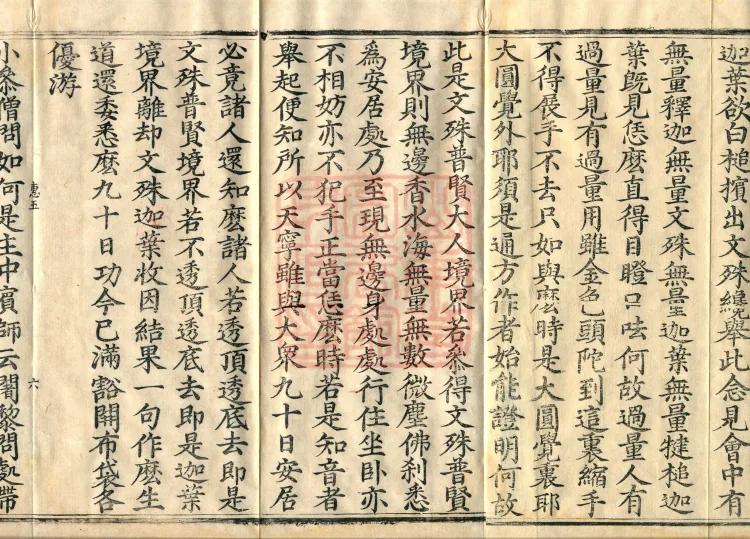 迦葉欲白槌擯出文殊纔舉此念見會中有
無量釋迦無量文殊無量迦葉無量犍槌迦
葉旣見恁麽直得目瞪口呿何故過量人有
過量見有過量用雖金色頭陀到這裏縮手
不得展手不去只如與麽時是大圓覺裏耶
大圓覺外耶須是通方作者始能證明何故
此是文殊普賢大人境界若叅得文殊普賢
境界則無邊香水海無量無數微塵佛刹悉
爲安居處乃至現無邊身處處行住坐卧亦
不相妨亦不犯手正當恁麽時若是知音者
舉起便知所以天寧雖與大衆九十日安居
必竟諸人還知麽諸人若透頂透底去即是
文殊普賢境界若不透頂透底去即是迦葉
境界離却文殊迦葉收因結果一句作麽生
道還委悉麽九十日功今已滿豁開布袋各
優游
惠五
六
小叅僧問如何是主中賓師云闍黎問處帶